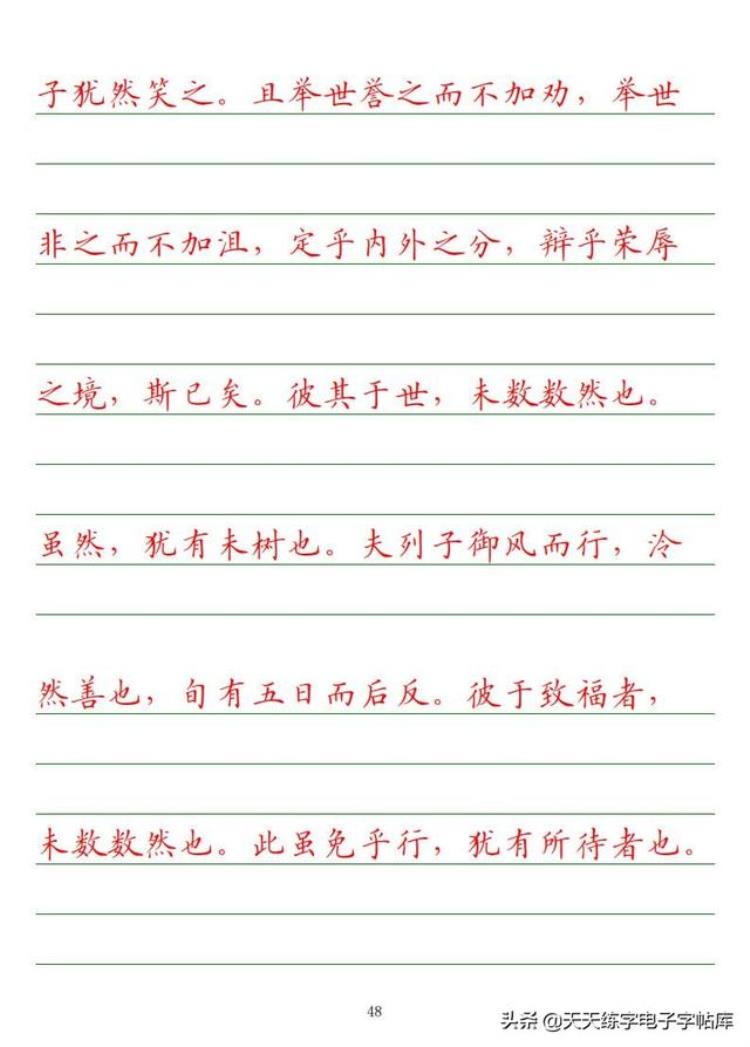 子犹然笑之。且举世誉之而不加劝，举世
非之而不加沮，定乎内外之分，辩乎荣辱
之境，斯已矣。彼其于世，未数数然也。
虽然，犹有未树也。夫列子御风而行，泠
然善也，旬有五日而后反。彼于致福者，
未数数然也。此虽免乎行，犹有所待者也。
48
头条 @天天练字电子字帖库